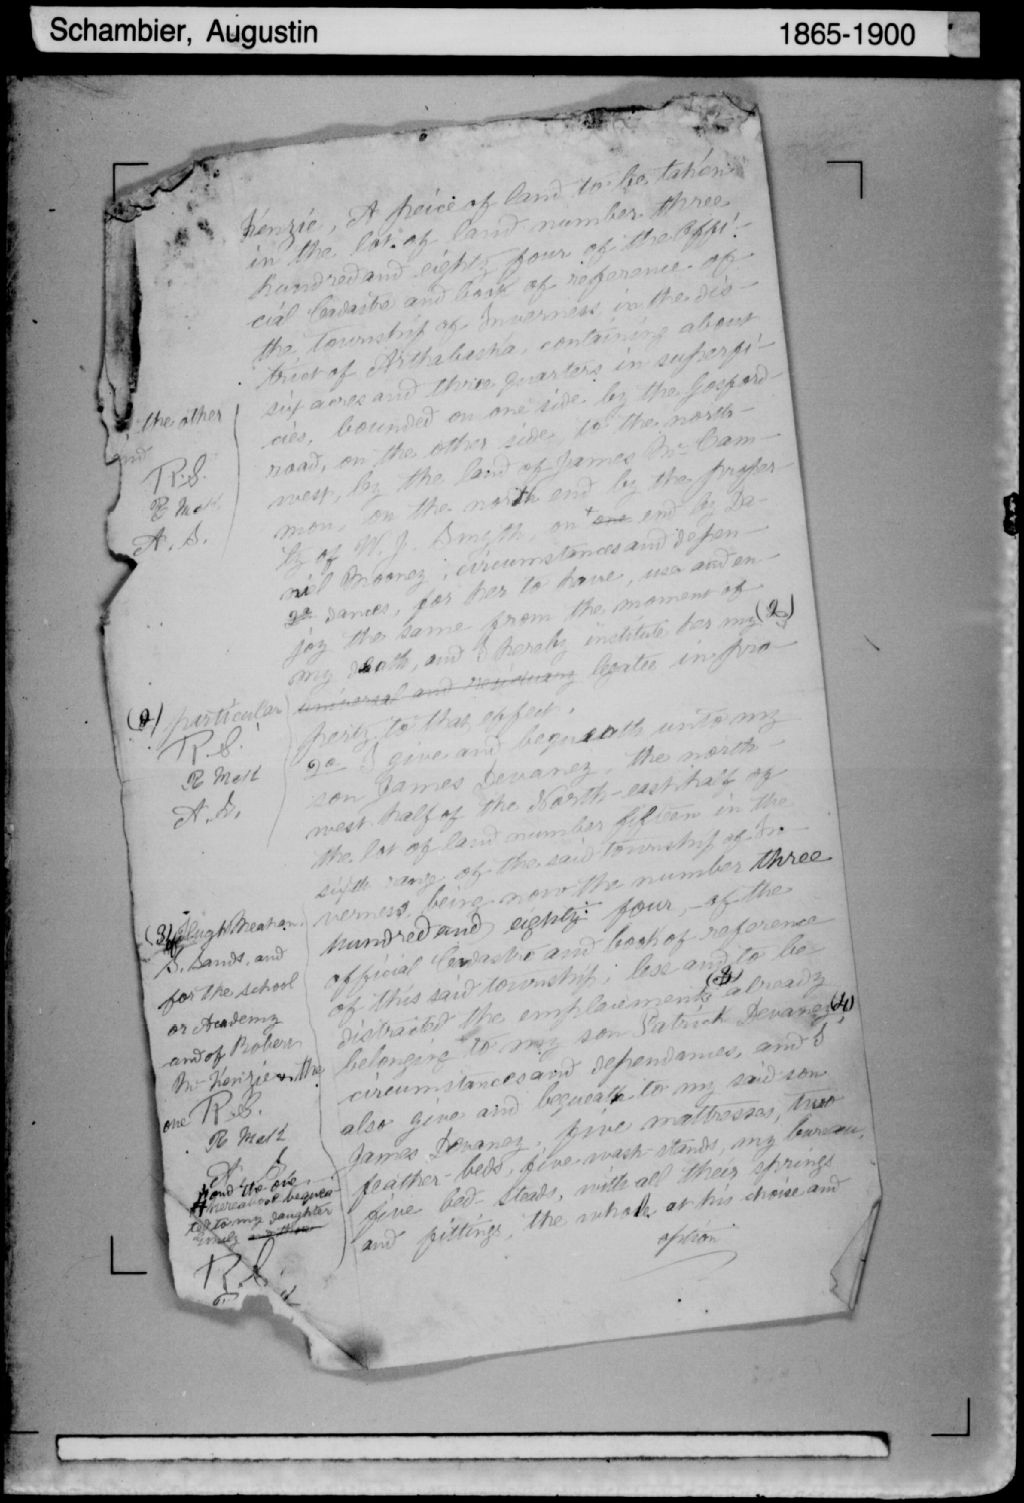 Schambier, Augustin 1865-1900
Kenzie, A peice of land to be taken
in the lot of land number three
hundred and eighty four of the offi-
cial Cadastre and book of reference of
the township of Inverness in the dis-
trict of Arthabaska, containing about
six acres and three quarters in superfi-
cies, bounded on one side by the Gosford
road, on the other side, to the north-
west, by the land of James Mc Cam-
mon, on the north end by the proper-
ty of W. J. Smyth, on + one end by Da-
niel Mooney; circumstances and depen-
dances, for her to have, use and en-
joy the same from the moment of
my death, and I hereby institute her my (2)
universal and residuary legatee in pro-
perty to that effect.
2o I give and bequeath unto my
son James Devaney, the north-
west half of the North-east half of
the lot of land number fifteen in the
sixth range of the said township of In-
verness, being now the number three
hundred and eighty four, of the
official Cadastre and book of reference
of this said township; less and to be
distracted the emplacements (3) already
belonging to my son Patrick Devaney (4)
circumstances and dependances, and I
also give and bequeath to my said son
James Devaney, five mattresses, two
feather-beds, five wash-stands, my bureau,
five bed-steads, with all their springs
and fittings, the whole at his choise and
option
the other
end
R. S.
R McK
A. S.
(2) particular
R. S.
R McK
A. S.
(3) of Hugh
S. Sands, and
for the school
or Academy
and of Robert
Mc Kenzie on the
one R. S.
R McK
and the one
hereabove bequea-
ted to my daughter
Emily
R. S.